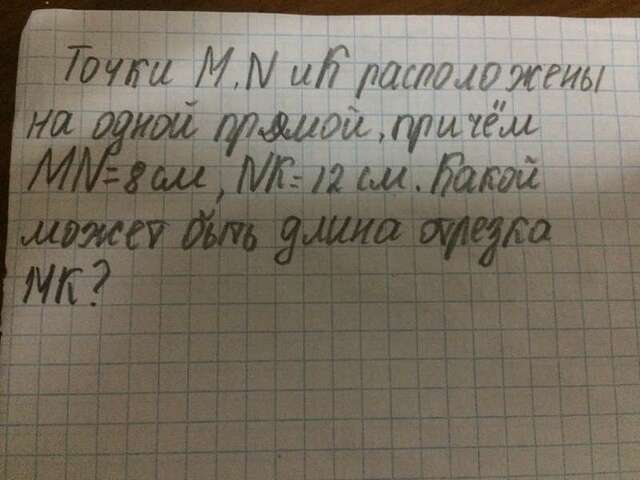 Точки M, N и K расположены
на одной прямой, причём
MN=8 см, NK=12 см. Какой
может быть длина отрезка
MK?